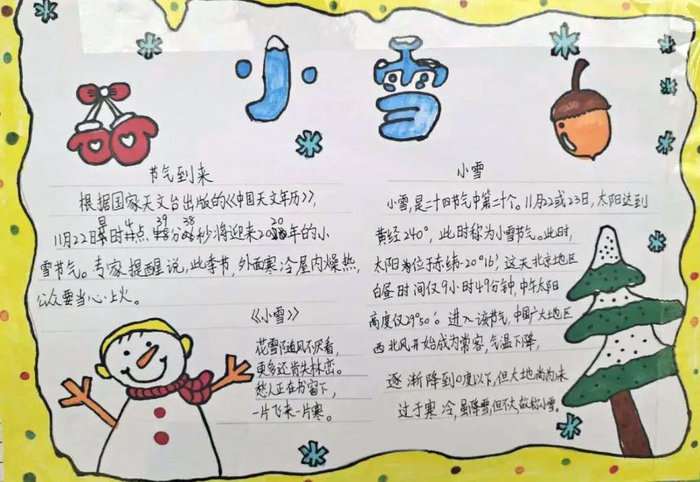 小雪
节气到来
根据国家天文台出版的《中国天文年历》,
11月22日 时 分 秒将迎来2020年的小
雪节气。专家提醒说,此季节,外面寒冷屋内燥热,
公众要当心上火。
《小雪》
花雪随风不厌看,
更多还肯失林峦。
愁人正在书窗下,
一片飞来一片寒。
小雪
小雪,是二十四节气中第二十个。11月22或23日,太阳达到
黄经240°,此时称为小雪节气。此时,
太阳 位于赤纬-20°16′,这天北京地区
白昼时间仅9小时49分钟,中午太阳
高度仅29°50′。进入该节气,中国广大地区
西北风开始成为常客,气温下降,
逐渐降到0度以下,但大地尚未
过于寒冷,虽降雪,但不大,故称小雪。